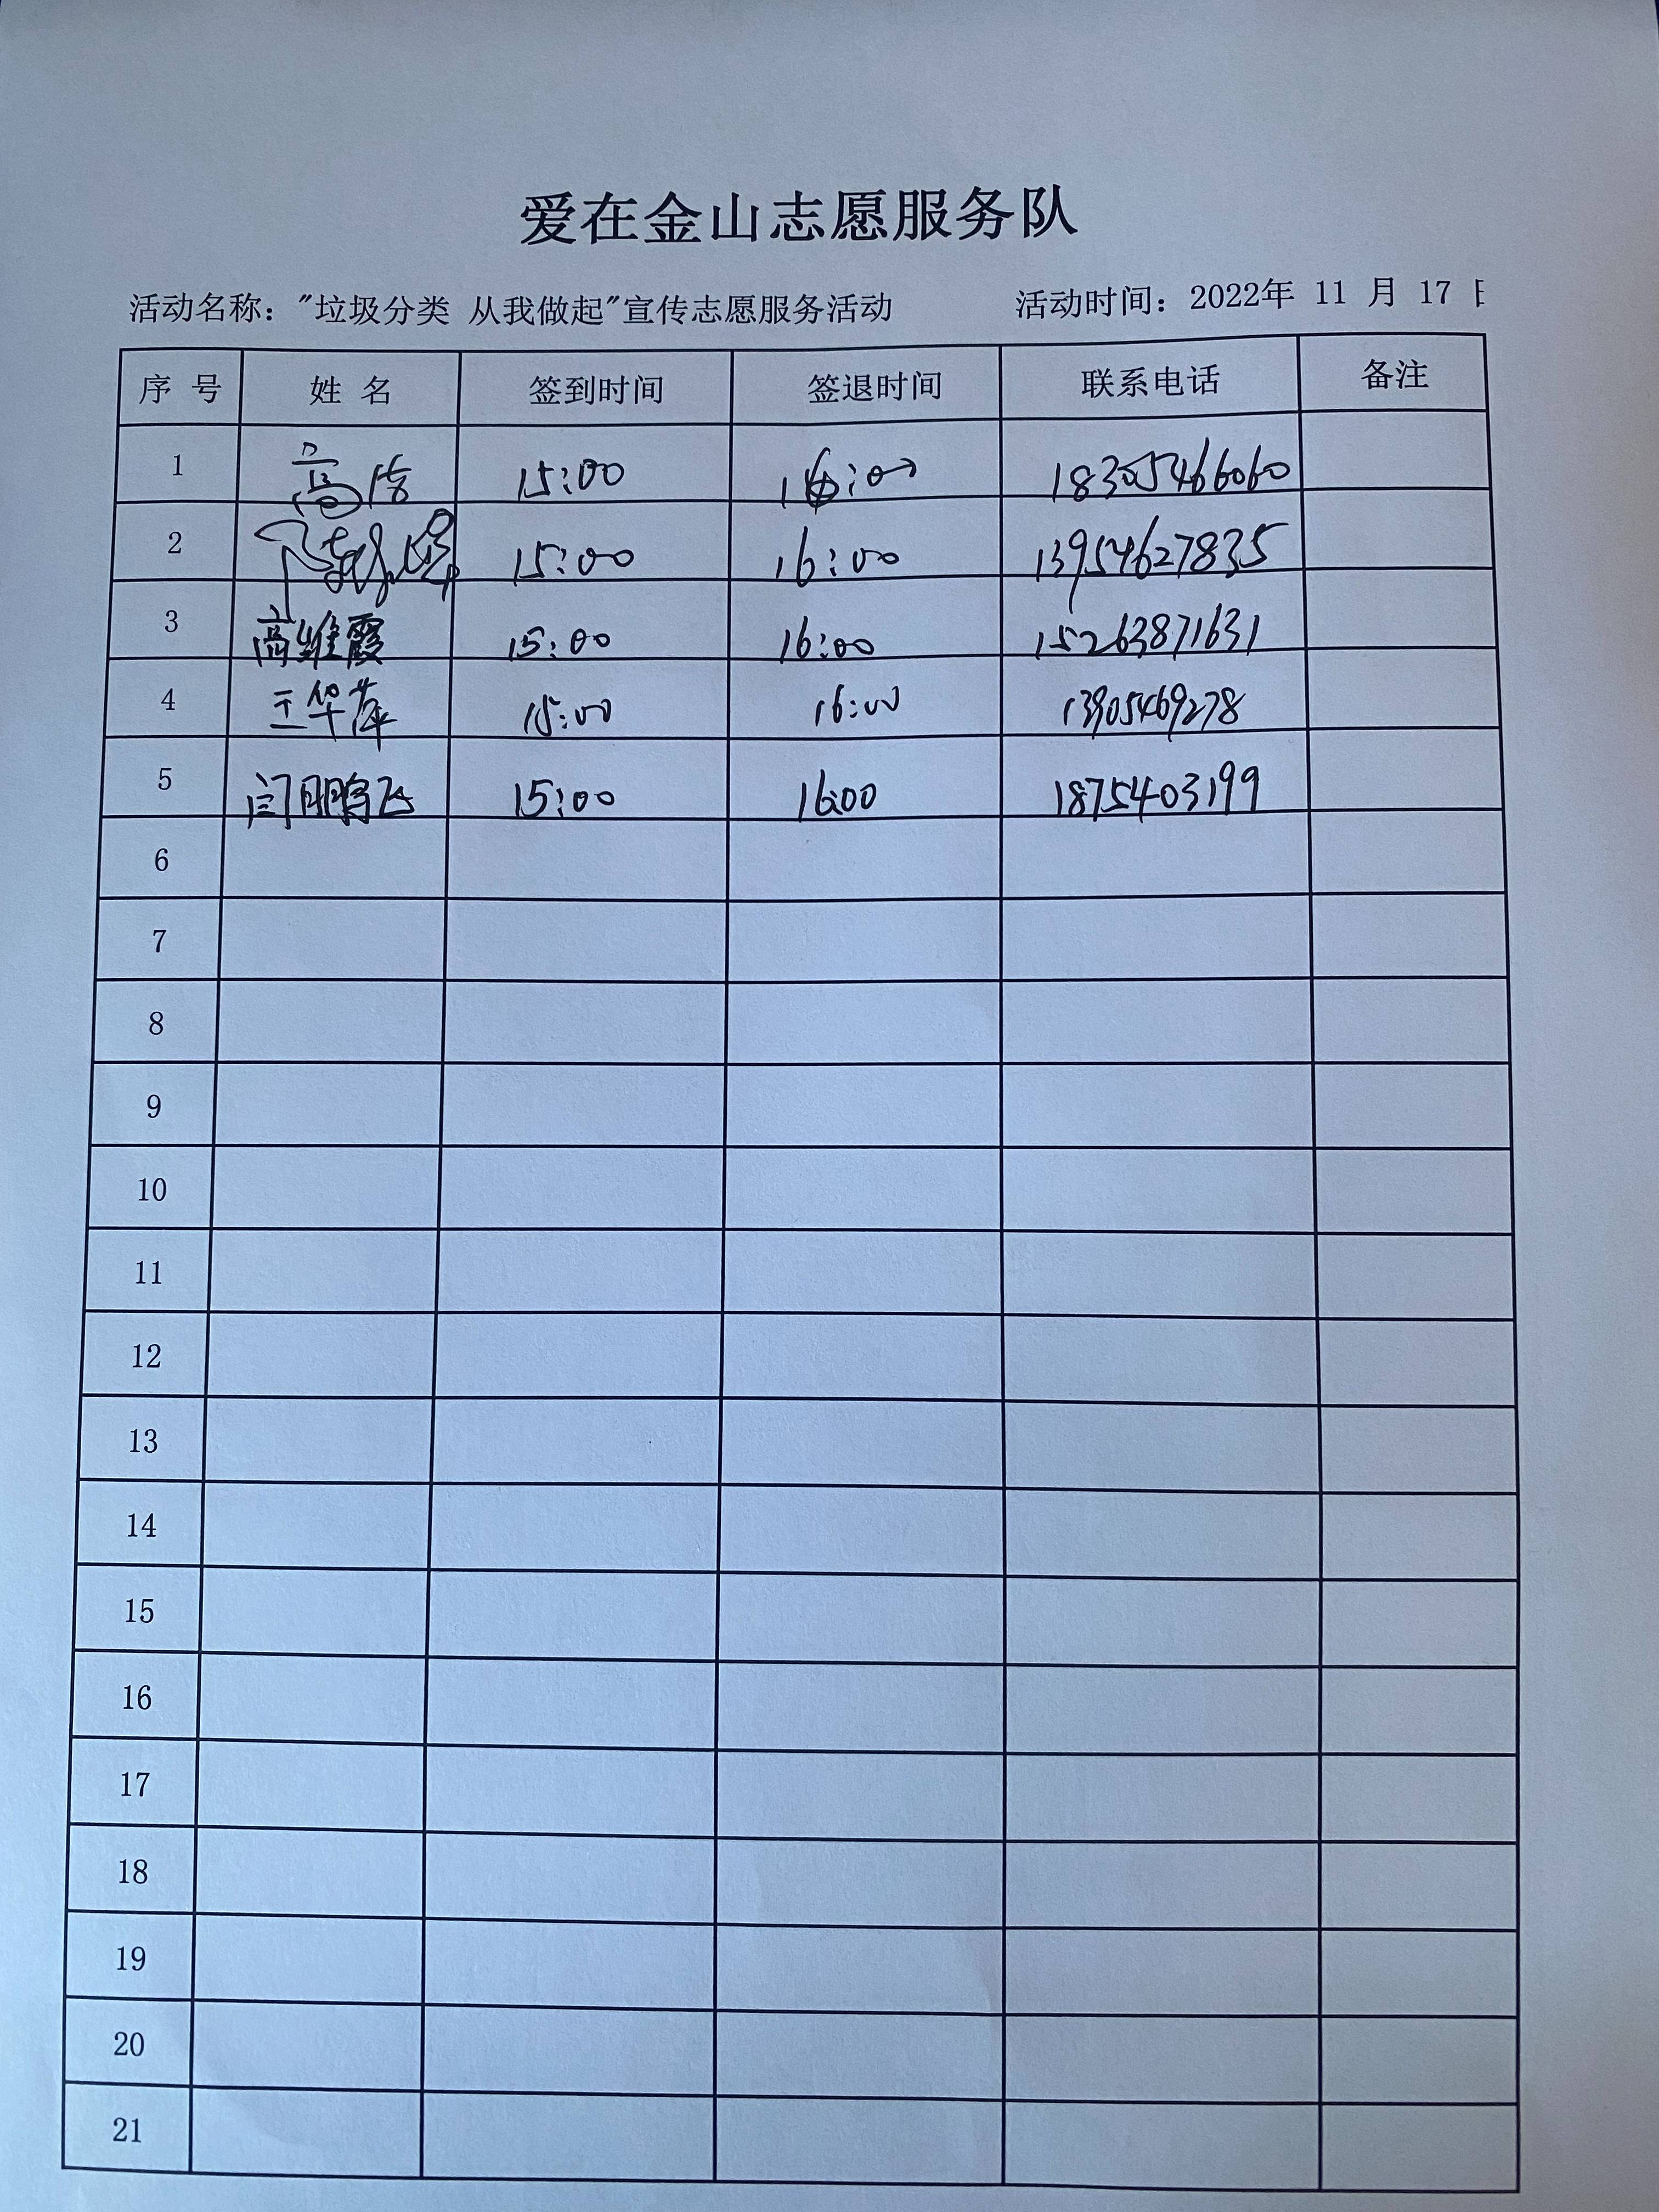 爱在金山志愿服务队
活动名称："垃圾分类 从我做起"宣传志愿服务活动 活动时间：2022年 11 月 17 日
序 号 姓 名 签到时间 签退时间 联系电话 备注
1 高 15:00 16:00 18305466060
2 15:00 16:00 13954627835
3 高维霞 15:00 16:00 15263871631
4 王华萍 15:00 16:00 13905469278
5 闫鹏飞 15:00 16:00 18754403199
6
7
8
9
10
11
12
13
14
15
16
17
18
19
20
21